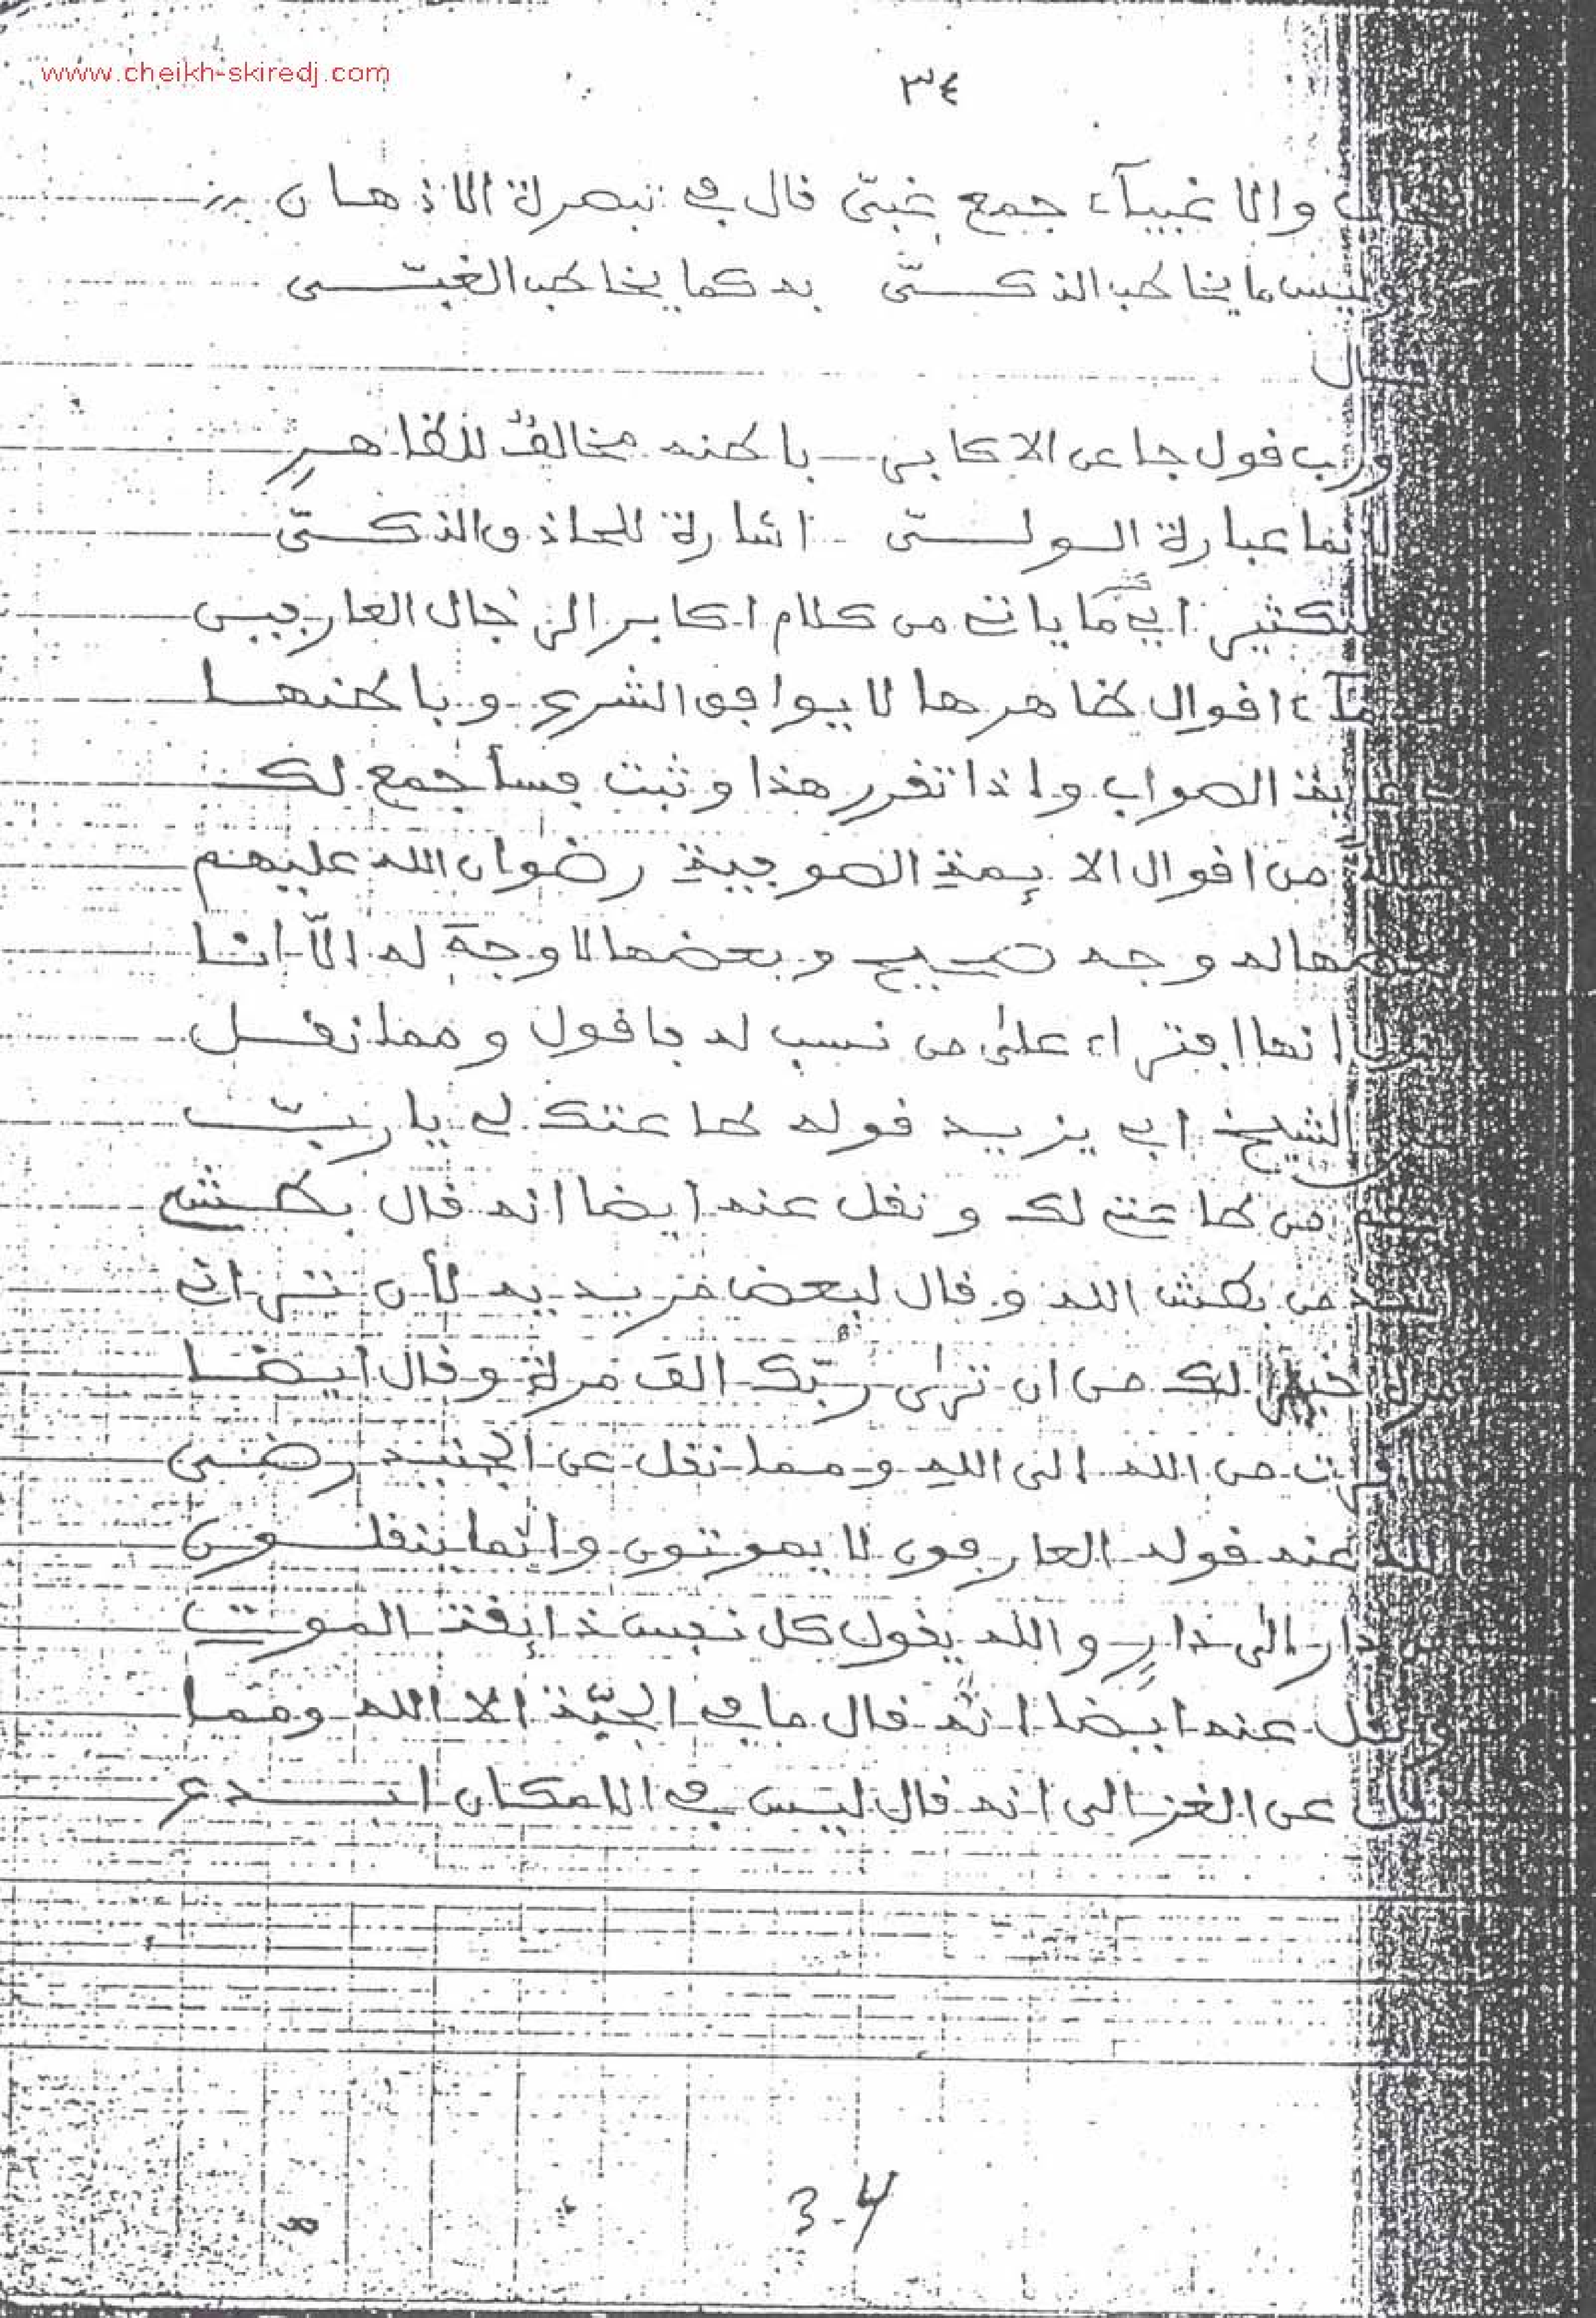 www.cheikh-skiredj.com
٣٤
والاغبيآء جمع غبيّ قال في تبصرة الاذهان
وليس ما يخاطب الذكــيّ به كما يخاطب الغبــيّ
ورب قول جا عن الاكابر باطنه مخالفٌ للظاهرِ
لانما عبارة الــولــيّ اشارة للحاذق الذكــيّ
اي كما ياتي من كلام اكابر الرجال العارفين
اقوال ظاهرها لا يوافق الشرع وباطنها
غاية الصواب واذا تقرر هذا وثبت فسأجمع لك
من اقوال الايمة الصوفية رضوان الله عليهم
له وجه صحيح وبعضها لا وجهَ له الّا اننا
انها افتراء على من نسب له فاقول ومما نقل
الشيخ ابي يزيد قوله طاعتك لي يا ربّ
من طاعتي لك ونقل عنه ايضا انه قال بطشي
من بطش الله وقال لبعض مريديه لأن تراني
خير لك من ان ترى ربّك الف مرة وقال ايضا
سافرت من الله الى الله ومما نقل عن الجنيد رضي
الله عنه قوله العارفون لا يموتون وانما ينقلون
من دار الى دارٍ والله يقول كل نفس ذايقة الموت
ونقل عنه ايضا انّه قال ما في الجبّة الا الله وممّا
نقل عن الغزالى انه قال ليس في الامكان ابــدع
3-4